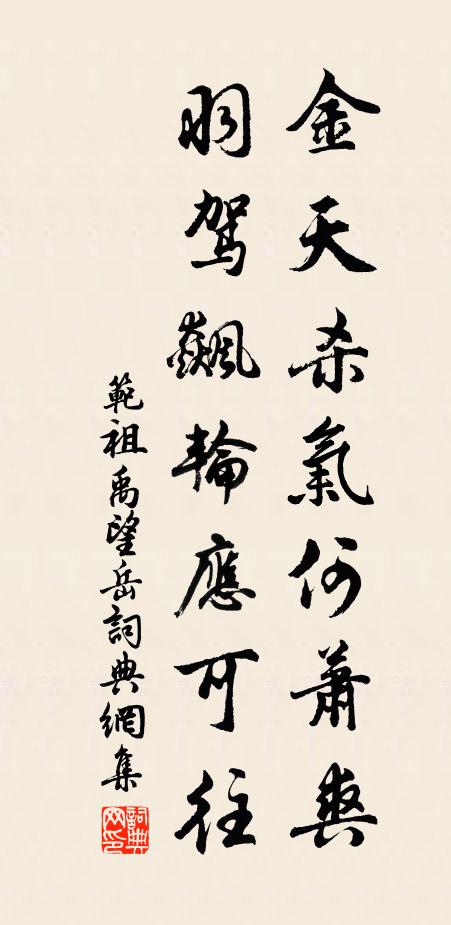 金天杀氣何蕭爽
羽駕飆輪應可往
範祖禹望岳詞典網集
詞典網印